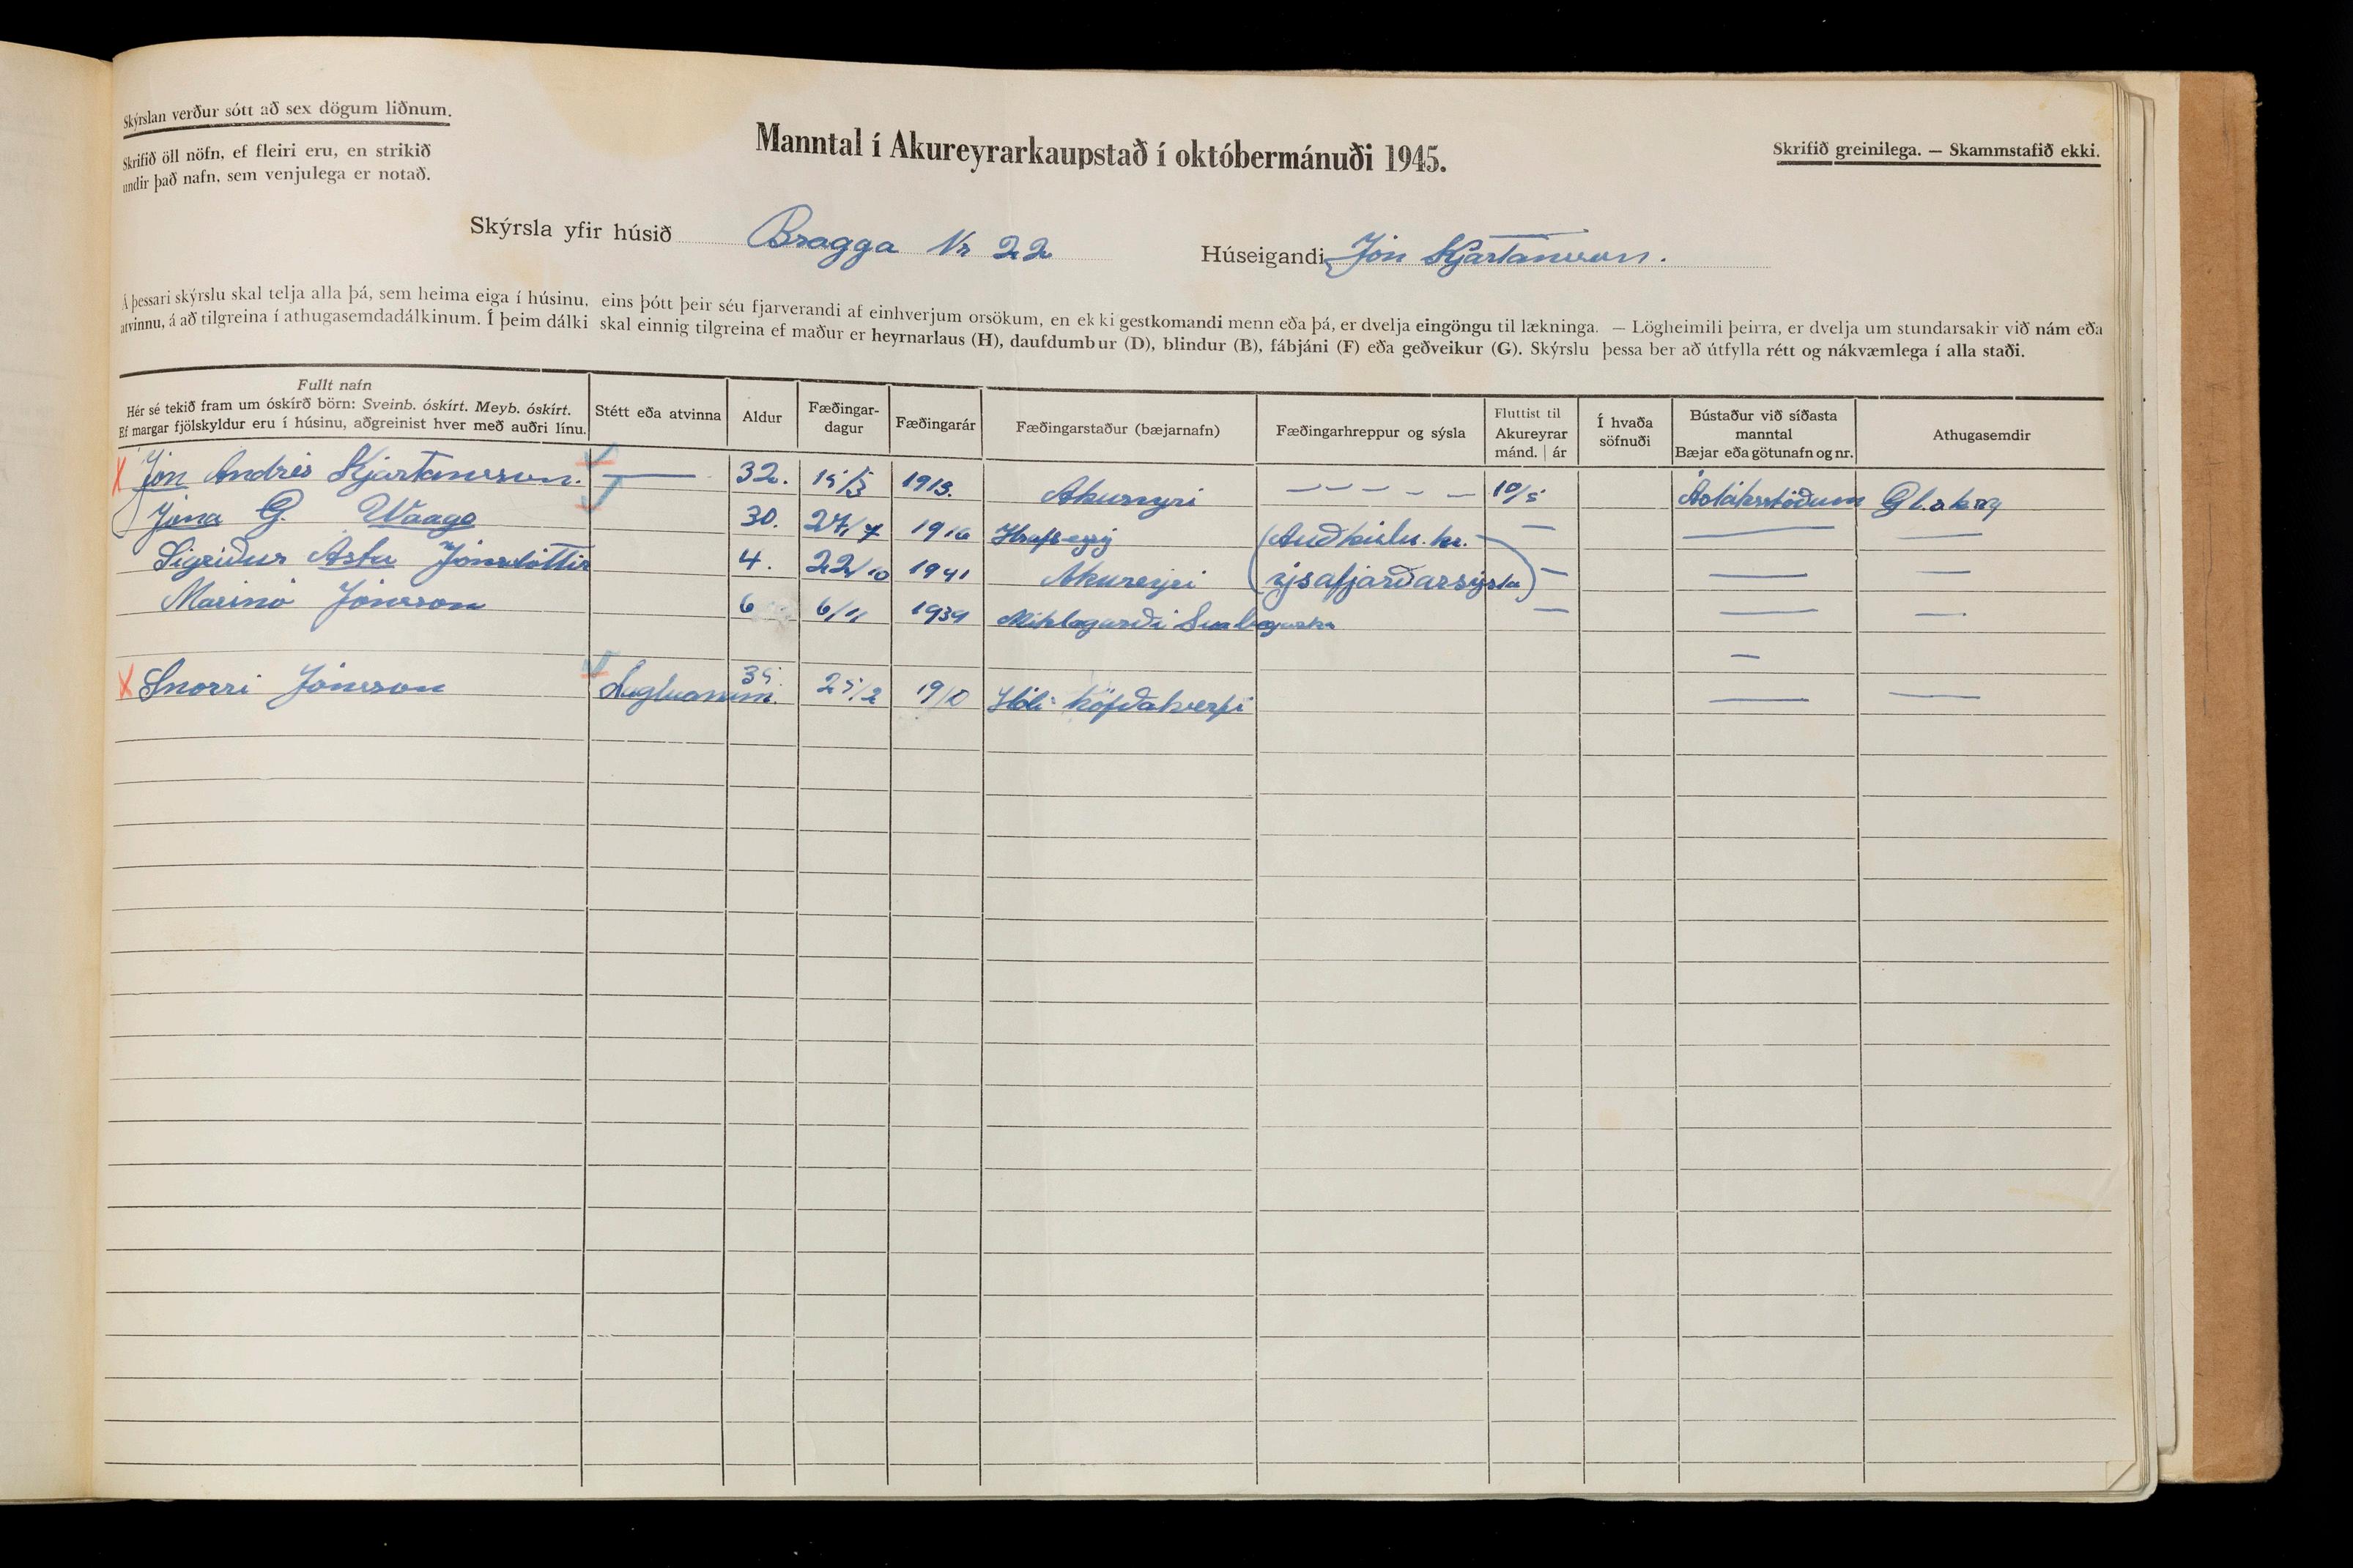 Skýrslan verður sótt að sex dögum liðnum.
Skrifið öll nöfn, ef fleiri eru, en strikið
undir það nafn, sem venjulega er notað.
Manntal í Akureyrarkaupstað í októbermánuði 1945.
Skrifið greinilega. — Skammstafið ekki.
Skýrsla yfir húsið Bragga Nr 22 Húseigandi Jón Kjartansson.
Á þessari skýrslu skal telja alla þá, sem heima eiga í húsinu, eins þótt þeir séu fjarverandi af einhverjum orsökum, en ekki gestkomandi menn eða þá, er dvelja eingöngu til lækninga. — Lögheimili þeirra, er dvelja um stundarsakir við nám eða
atvinnu, á að tilgreina í athugasemdadálkinum. Í þeim dálki skal einnig tilgreina ef maður er heyrnarlaus (H), daufdumbur (D), blindur (B), fábjáni (F) eða geðveikur (G). Skýrslu þessa ber að útfylla rétt og nákvæmlega í alla staði.
Fullt nafn
Hér sé tekið fram um óskírð börn: Sveinb. óskírt. Meyb. óskírt.
Ef margar fjölskyldur eru í húsinu, aðgreinist hver með auðri línu.
Stétt eða atvinna
Aldur
Fæðingar-
dagur
Fæðingarár
Fæðingarstaður (bæjarnafn)
Fæðingarhreppur og sýsla
Fluttist til
Akureyrar
mánd. | ár
Í hvaða
söfnuði
Bústaður við síðasta
manntal
Bæjar eða götunafn og nr.
Athugasemdir
X Jón Andrés Kjartansson. — 32. 15/3 1913. Akureyri — — — — — 10/5
Jóna G. Waage 30. 27/7 1916 Hrafseyri (Auðkúlu.hr. —
Sigríður Asta Jónsdóttir 4. 22/10 1941 Akureyri ísafjarðarsýsla) — — —
Marinó Jónsson 6 6/11 1939 Miklagarði — — —
—
X Snorri Jónsson 35. 25/2 1910 Höfðahverfi — —